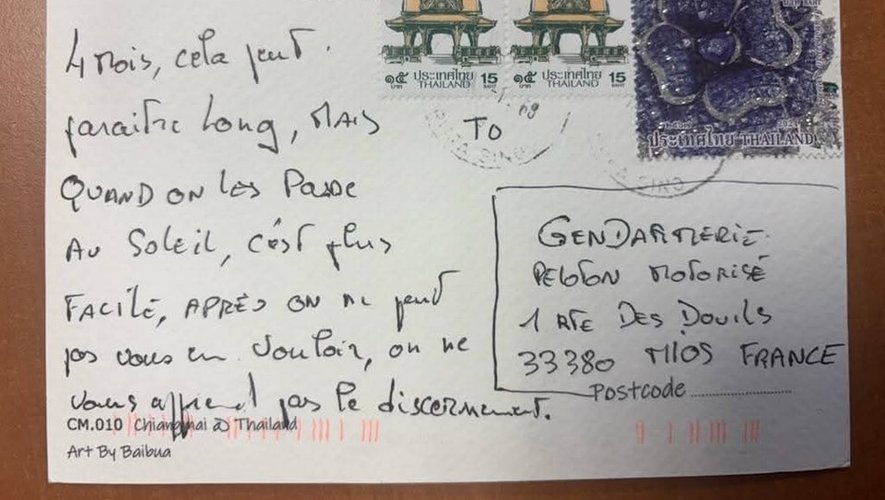 4 Mois, cela peut
paraitre long, MAIS
QUAND ON LES PASSE
AU SOLEIL, C'EST plus
FACILE, APRÈS ON NE peut
pas vous en vouloir, on ne
vous apprend pas le discernement.
CM.010 Chiangmai Thailand
Art By Baibua
๑๕ ประเทศไทย 15
บาท THAILAND BAHT
๑๕ ประเทศไทย 15
บาท THAILAND BAHT
ประเทศไทย THAILAND
TO
GENDARMERIE
PELOTON MOTORISÉ
1 RTE DES DOUILS
33380 MIOS FRANCE
Postcode